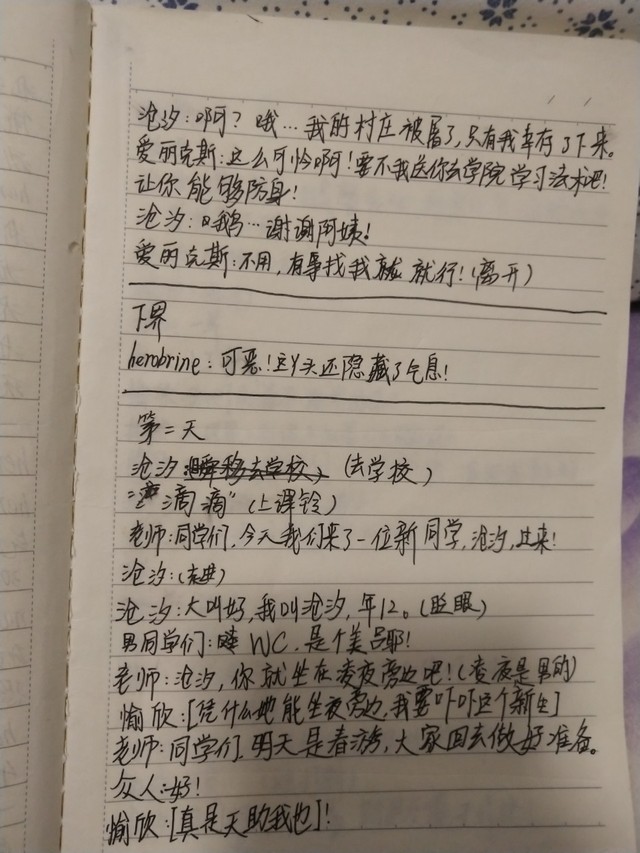 沧汐：啊？哦…我的村庄被屠了，只有我幸存了下来。
爱丽克斯：这么可怜啊！要不我送你去学院学习法术吧！
让你能够防身！
沧汐：哦…谢谢阿姨！
爱丽克斯：不用，有事找我就就行！（离开）
下界
herobrine：可恶！这丫头还隐藏了气息！
第二天
沧汐：瞬移去学校）（去学校）
“滴滴”（上课铃）
老师：同学们，今天我们来了一位新同学，沧汐，过来！
沧汐：（走进）
沧汐：大叫好，我叫沧汐，年12。（眨眼）
男同学们：WC，是个美吕耶！
老师：沧汐，你就坐在凌夜旁边吧！（凌夜是男的）
愉欣：[凭什么她能坐夜旁边，我要吓吓这个新生]
老师：同学们，明天是春游，大家回去做好准备。
众人：好！
愉欣：[真是天助我也]！